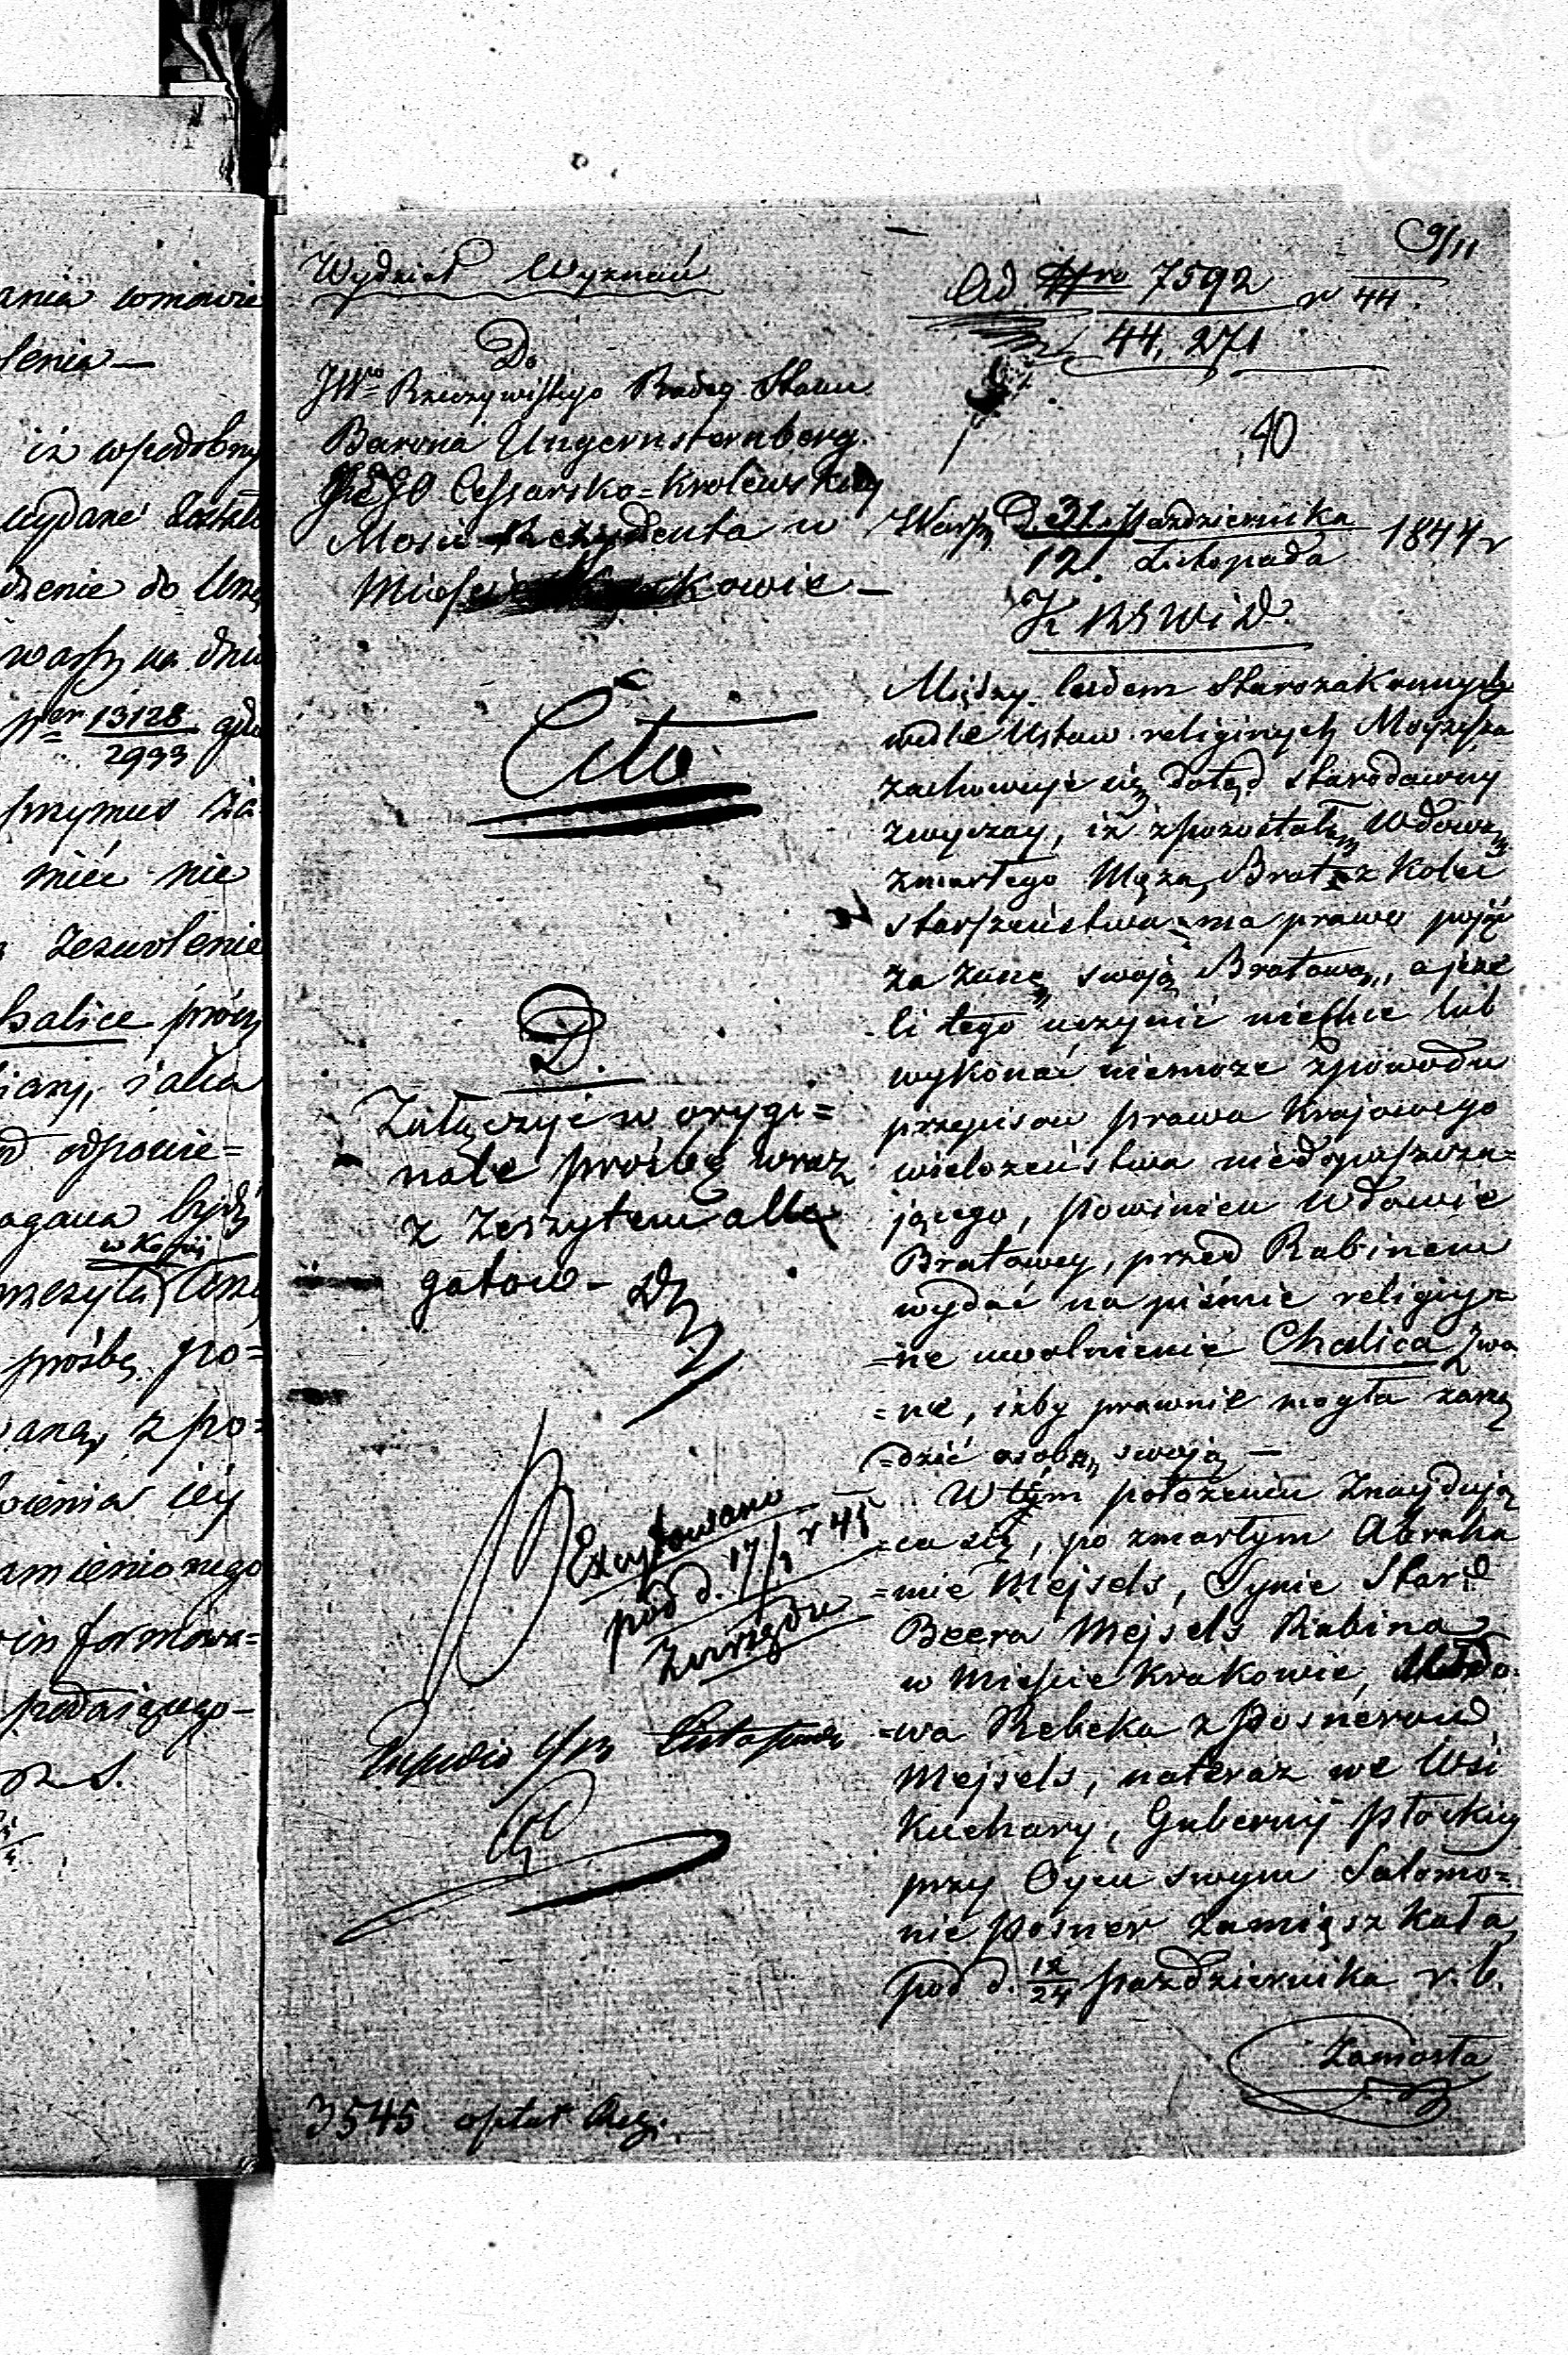 ania wmowie
lenia —
iż wpodobny
wydane zostało
dzenie do Urzę
warsz na dniu
Ner 13128 gdu
2933
przymus za
mieć nie
zezwolenie
halice prócz
iany, iaka
odpowie=
agana bydź
w Kopij
przesyła
prośbę po=
waną, z po=
ienia iey
amienionego
informowa=
podaiącego —
Wydział Wyznań
Do
JWgo Rzeczywistego Radcy Stanu
Barona Ungernsternberg.
JEGO Cessarsko=Królewskiey
Mości Rezydenta w
Mieście Krakowie —
Cito
D.
Załączyć w orygi=
nale prośbę wraz
z Zeszytem alle
gatow —
Excytowano
pod d. 17/ r 45
Zurzędu
Listopada
3545 opłat Reg.
9/11
Ad Nro 7592 r 44.
44,271
40
Warsz D. 31. Października 1844 r
12. Listopada
K R S W i D.
Między ludem Starozakonnych
wedle Ustaw religijnych Moyżesza
zachowuje się dotąd starodawny
zwyczay, iż zpozostałą Wdową
zmarłego Męża, Brat z kolei
starszeństwa ma prawo pojąć
za żonę swoją Bratową, a jeże
li tego uczynić niechce lub
wykonać niemoże zpowodu
przepisow prawa Krajowego
wielożeństwa niedopuszcza=
jącego, powinien Wdowie
Bratowey, przed Rabinem
wydać na piśmie religijn=
=ne uwolnienie Chalica zwa
=ne, iżby prawnie mogła zarzą
=dzić osobą swoją —
W tym położeniu Znaydują
=ca się, po zmarłym Abraha
=mie Mejsels, Synie Star:
Beera Mejsels Rabina
w Mieście Krakowie, Wdo=
=wa Rebeka z Posnerow
Mejsels, nateraz we Wsi
Kuchary, Gubernij Płockiey
przy Oycu swym Salomo=
nie Posner zamięszkała
pod d. 12/24 Października r. b.
Zaniosła